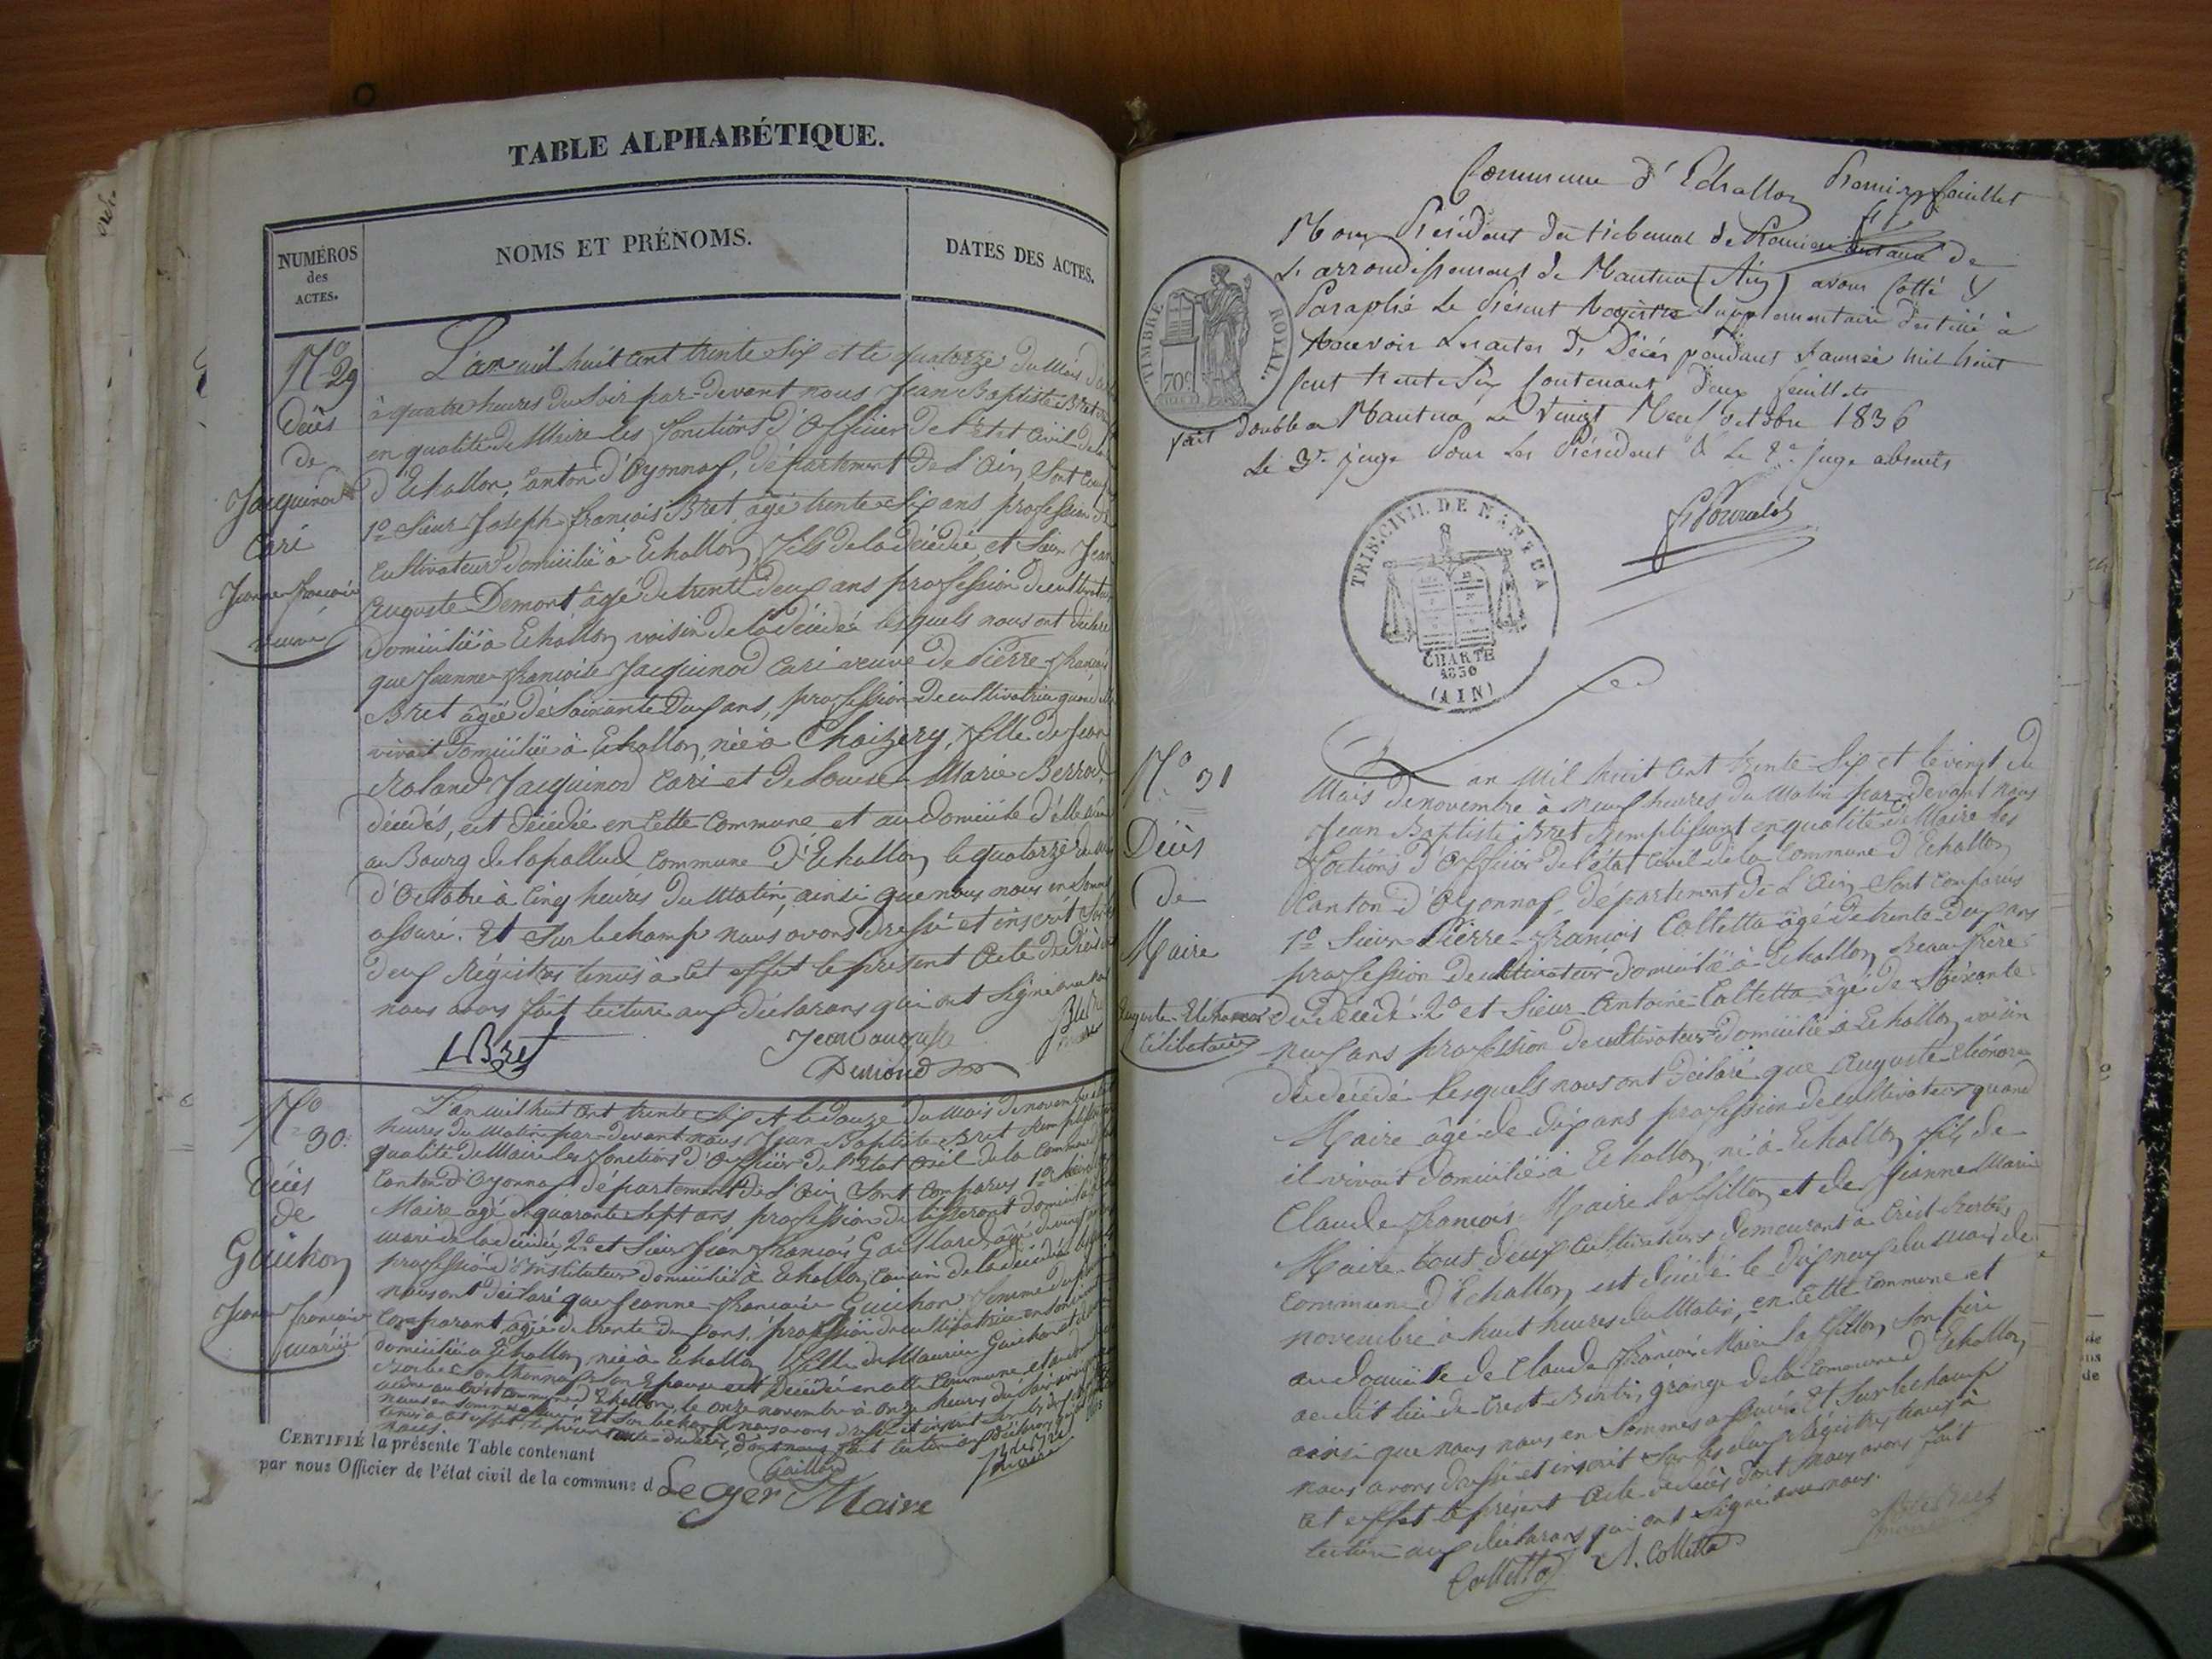 TABLE ALPHABÉTIQUE.
NUMÉROS
des
ACTES.
NOMS ET PRÉNOMS.
DATES DES ACTES.
No 29
Décès
de
Jacquinod
Cari
Jeanne françoise
veuve
L'an mil huit cent trente six et le quatorze du Mois
à quatre heures du soir par-devant nous Jean Baptiste Bret
en qualité de Maire les fonctions d'Officier de l'Etat Civil de la
d'Echallon, Canton d'Oyonnax, département de l'Ain, Sont
1o Sieur Joseph françois Bret âgé trente six ans profession de
Cultivateur domicilié à Echallon fils de la décédée, et Sieur Jean
Auguste Demont âgé de trente deux ans profession de cultivateur
domicilié à Echallon voisin de la décédée lesquels nous ont déclaré
que Jeanne françoise Jacquinod Cari veuve de Pierre françois
Bret âgée de Soixante Deux ans, profession de cultivatrice quand elle
vivait domiciliée à Echallon, née à Chaizery, fille de Jean
Roland Jacquinod Cari et de Louise Marie Berrod
décédés, est décédée en cette Commune et au domicile d'elle
au Bourg de lapallud Commune d'Echallon le quatorze
d'Octobre à Cinq heures du Matin, ainsi que nous nous en Sommes
assuré. Et Sur le champ nous avons dressé et inscrit Sur
deux Régistres tenus à cet effet le présent Acte de décès
nous avons fait lecture aux déclarans qui ont Signé
Bret
Jean auguste
Demond
No 30.
Décès
de
Guichon
Jeanne françoise
mariée
L'an mil huit cent trente six et le Douze du Mois de novembre
heures du Matin par-devant nous Jean Baptiste Bret Remplissant
qualité de Maire les fonctions d'Officier de l'Etat Civil de la Commune
Canton d'Oyonnax département de l'Ain Sont Comparus 1o Sieur
Maire âgé de quarante Sept ans, profession de tisserant domicilié
mari de la décédée, 2o et Sieur Jean françois Gaillard, âgé de vingt
profession d'Instituteur domicilié à Echallon, Cousin de la décédée
nous ont déclaré que Jeanne françoise Guichon femme du
Comparant âgée de trente deux ans, profession de cultivatrice
domiciliée à Echallon, née à Echallon fille de Maurice Guichon et
Son Epouse est Décédée en cette Commune et au
Commune d'Echallon, le onze novembre à onze heures du Soir
nous en Sommes assuré. Et Sur le champ nous avons dressé et inscrit Sur les deux
tenus à cet effet le présent acte de décès, dont nous fait lecture aux déclarans
nous.
CERTIFIÉ la présente Table contenant
par nous Officier de l'état civil de la commune d
Gaillard
Leger Maire
Commune d'Echallon Premier feuillet
Nous Président du tribunal de Première de
L'arrondissement de Nantua (Ain) avons Cotté &
Paraphé Le Présent Registre Supplémentaire destiné à
Recevoir Les actes de Décès pendant L'année mil huit
Cent trente Six Contenant deux feuillets
fait double à Nantua Le Vingt Neuf octobre 1836
Le 3e juge Pour Les Président & Le 2e juge absents
TIMBRE ROYAL.
70c
TRIB. CIVIL DE NANTUA
CHARTE
1830
(AIN)
No 31
Décès
de
Maire
Auguste Eléonore
Célibataire
L'an Mil huit Cent trente Six et le vingt du
Mois de novembre à Neuf heures du Matin par-devant nous
Jean Baptiste Bret Remplissant en qualité de Maire les
foctions d'Officier de l'état Civil de la Commune d'Echallon
Canton d'Oyonnax, département de l'Ain, Sont Comparus
1o Sieur Pierre-françois Colletta âgé de trente-deux ans
profession de cultivateur domicilié à Echallon Beau frère
du décédé. 2o et Sieur Antoine Colletta âgé de Soixante
neuf ans profession de cultivateur domicilié à Echallon voisin
du décédé lesquels nous ont déclaré que Auguste Eléonore
Maire âgé de dix ans profession de cultivateur quand
il vivait domicilié à Echallon, né à Echallon fils de
Claude françois Maire laffillon et de Jeanne Marie
Maire tous deux Cultivateurs demeurant à Crêt
Commune d'Echallon, est décédé le dix neuf du mois de
novembre à huit heures du Matin, en cette Commune et
au domicile de Claude François Maire laffillon, Son père
au dit lieu de Crêt grange de la Commune d'Echallon,
ainsi que nous nous en Sommes assuré. Et Sur le champ
nous avons dressé et inscrit Sur les deux Régistres tenus à
cet effet le présent Acte de décès dont Nous avons fait
lecture aux déclarans qui ont Signé avec nous.
Colletta A. Colletta